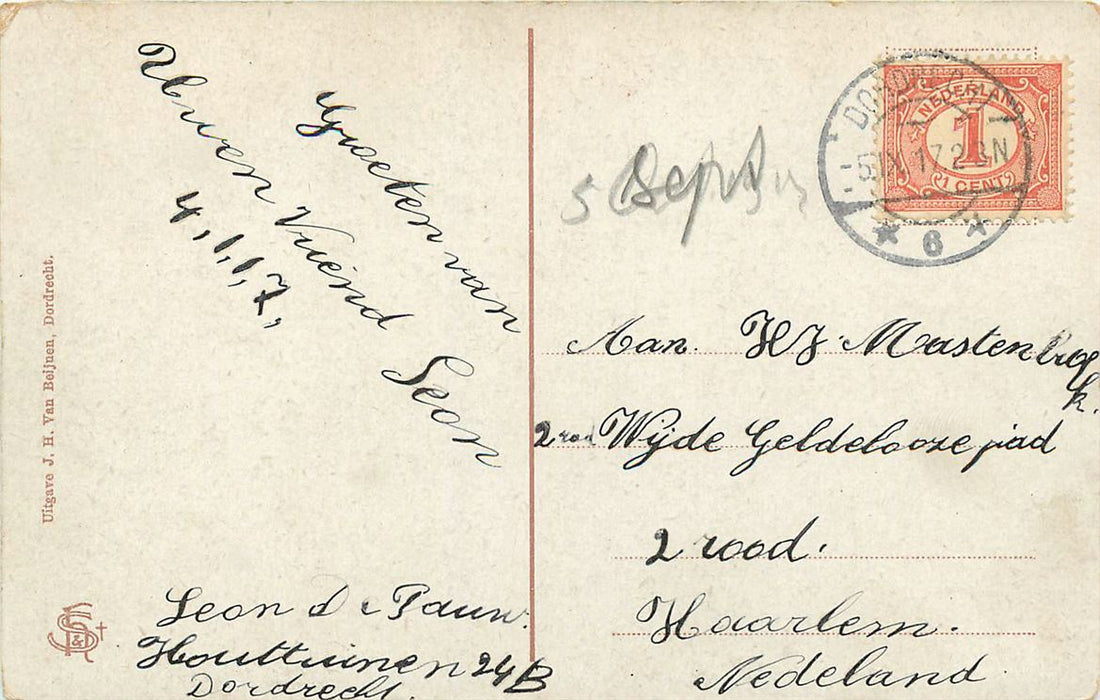 Groeten van
Uwen Vriend Leon
4,1,1,7,
Leon De Pauw.
Houttuinen 24B
Dordrecht.
Uitgave J. H. Van Beijnen, Dordrecht.
5 Sept
NEDERLAND
1
1 CENT
DORDRECHT
-5.IX.17.2-3N
6
Aan. HJ. Mastenbroek.
2 rood Wijde Geldelooze pad
2 rood.
Haarlem.
Nedeland